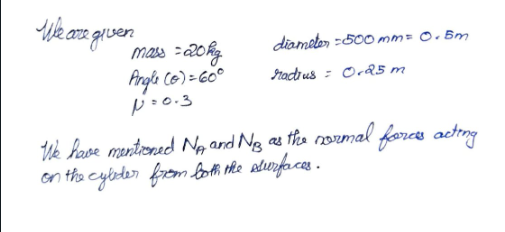 We are given
mass = 20kg
Angle (θ) = 60°
μ = 0.3
diameter = 500 mm = 0.5m
radius = 0.25 m
We have mentioned NA and NB as the normal forces acting
on the cylider from both the surfaces.